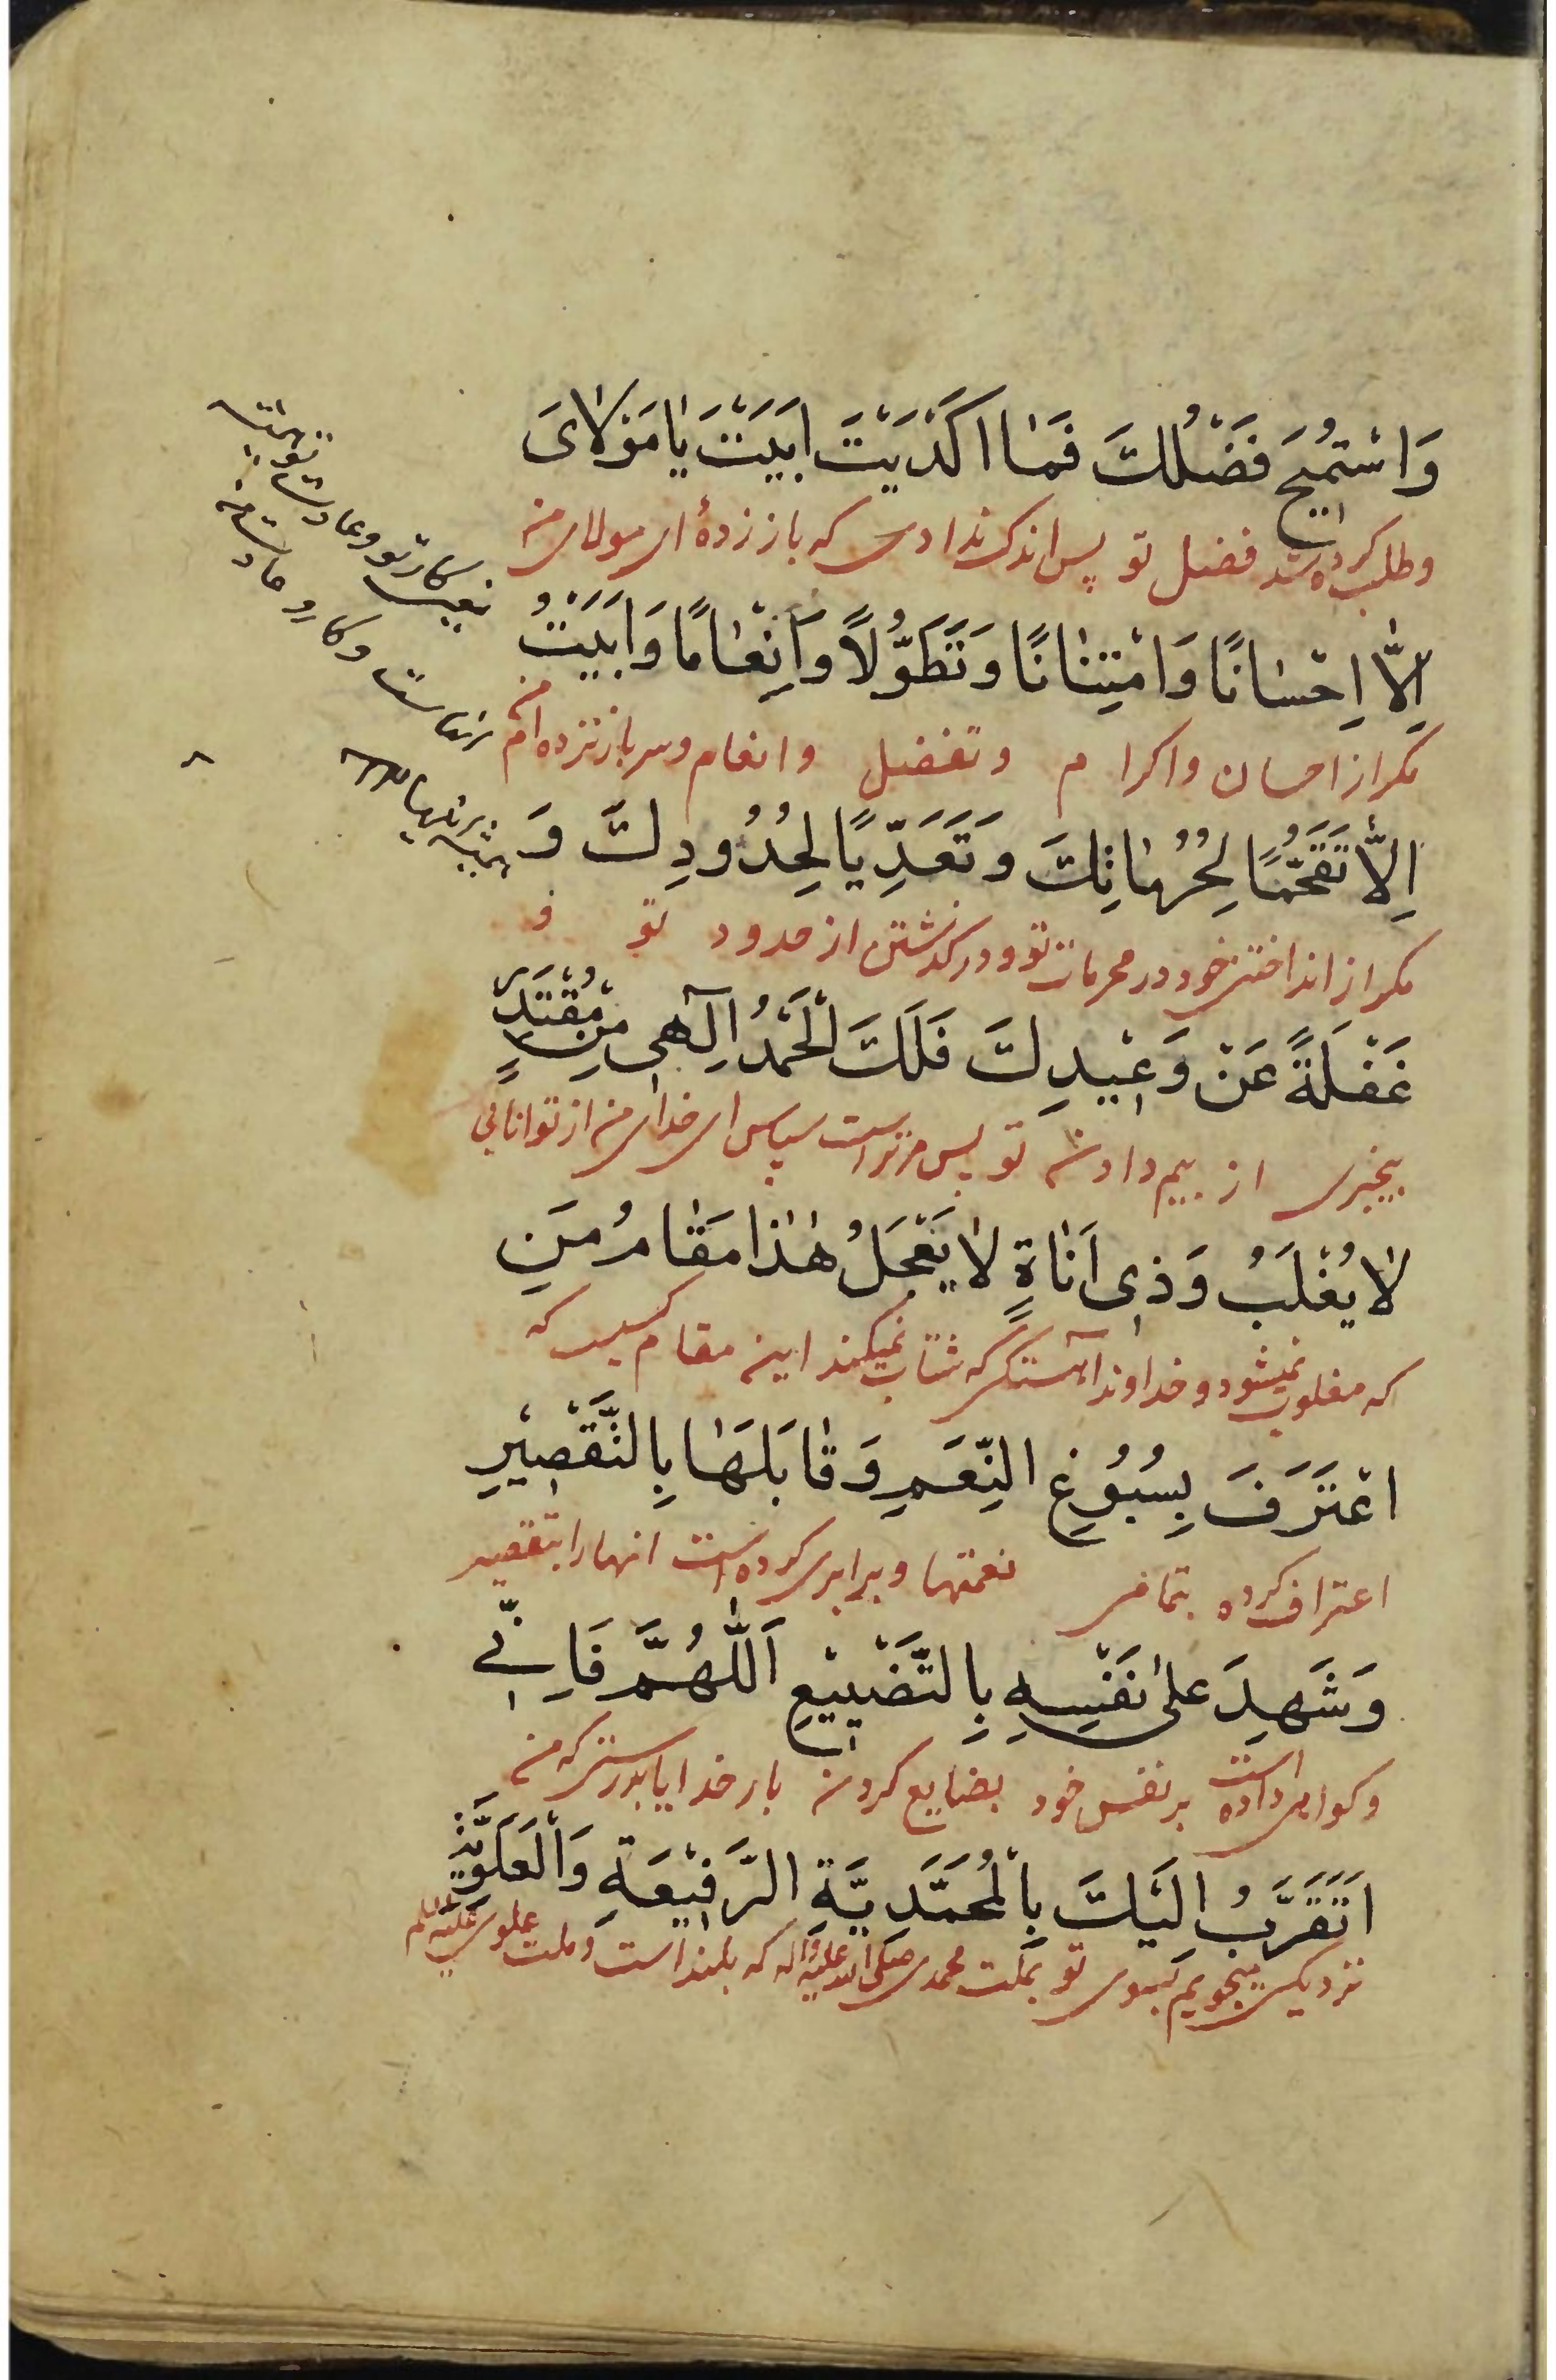 وَاسْتُمِيحَ فَضْلُكَ فَمَا اَكْدَيْتَ اَبَيْتَ يَا مَوْلَايَ
وطلب کرده شد فضل تو پس اندک ندادی که باز زدهٔ ای مولای من
اِلَّا اِحْسَانًا وَامْتِنَانًا وَتَطَوُّلًا وَاِنْعَامًا وَاَبَيْتُ
مکر از احسان واکرام وتفضل وانعام وسر باز نزده ام من
اِلَّا تَقَحُّمًا لِحُرُمَاتِكَ وَتَعَدِّيًا لِحُدُودِكَ وَ
مکر از انداختن خود در محرمات تو ودر کذشتن از حدود تو و
غَفْلَةً عَنْ وَعِيدِكَ فَلَكَ الْحَمْدُ اِلٰهِي مِنْ مُقْتَدِرٍ
بیخبری از بیم دادن تو پس مر تراست سپاس ای خدای من از توانایی
لَا يُغْلَبُ وَذِي اَنَاةٍ لَا يَعْجَلُ هٰذَا مَقَامُ مَنِ
که مغلوب نمیشود و خداوند آهستکی که شتاب نمیکند این مقام کسیست که
اعْتَرَفَ بِسُبُوغِ النِّعَمِ وَقَابَلَهَا بِالتَّقْصِيْرِ
اعتراف کرده بتمامی نعمتها وبرابری کرده است انها را بتقصیر
وَشَهِدَ عَلٰى نَفْسِهِ بِالتَّضْيِيْعِ اَللّٰهُمَّ فَاِنِّي
وکواهی داده است بر نفس خود بضایع کردن بار خدایا بدرستی که من
اَتَقَرَّبُ اِلَيْكَ بِالْمُحَمَّدِيَّةِ الرَّفِيْعَةِ وَالْعَلَوِيَّةِ
نزدیکی میجویم بسوی تو بملت محمدی صلی الله علیه واله که بلند است وملت علوی علیه السلم
یعنی کار تو وعادت تو
وکار و عادت من